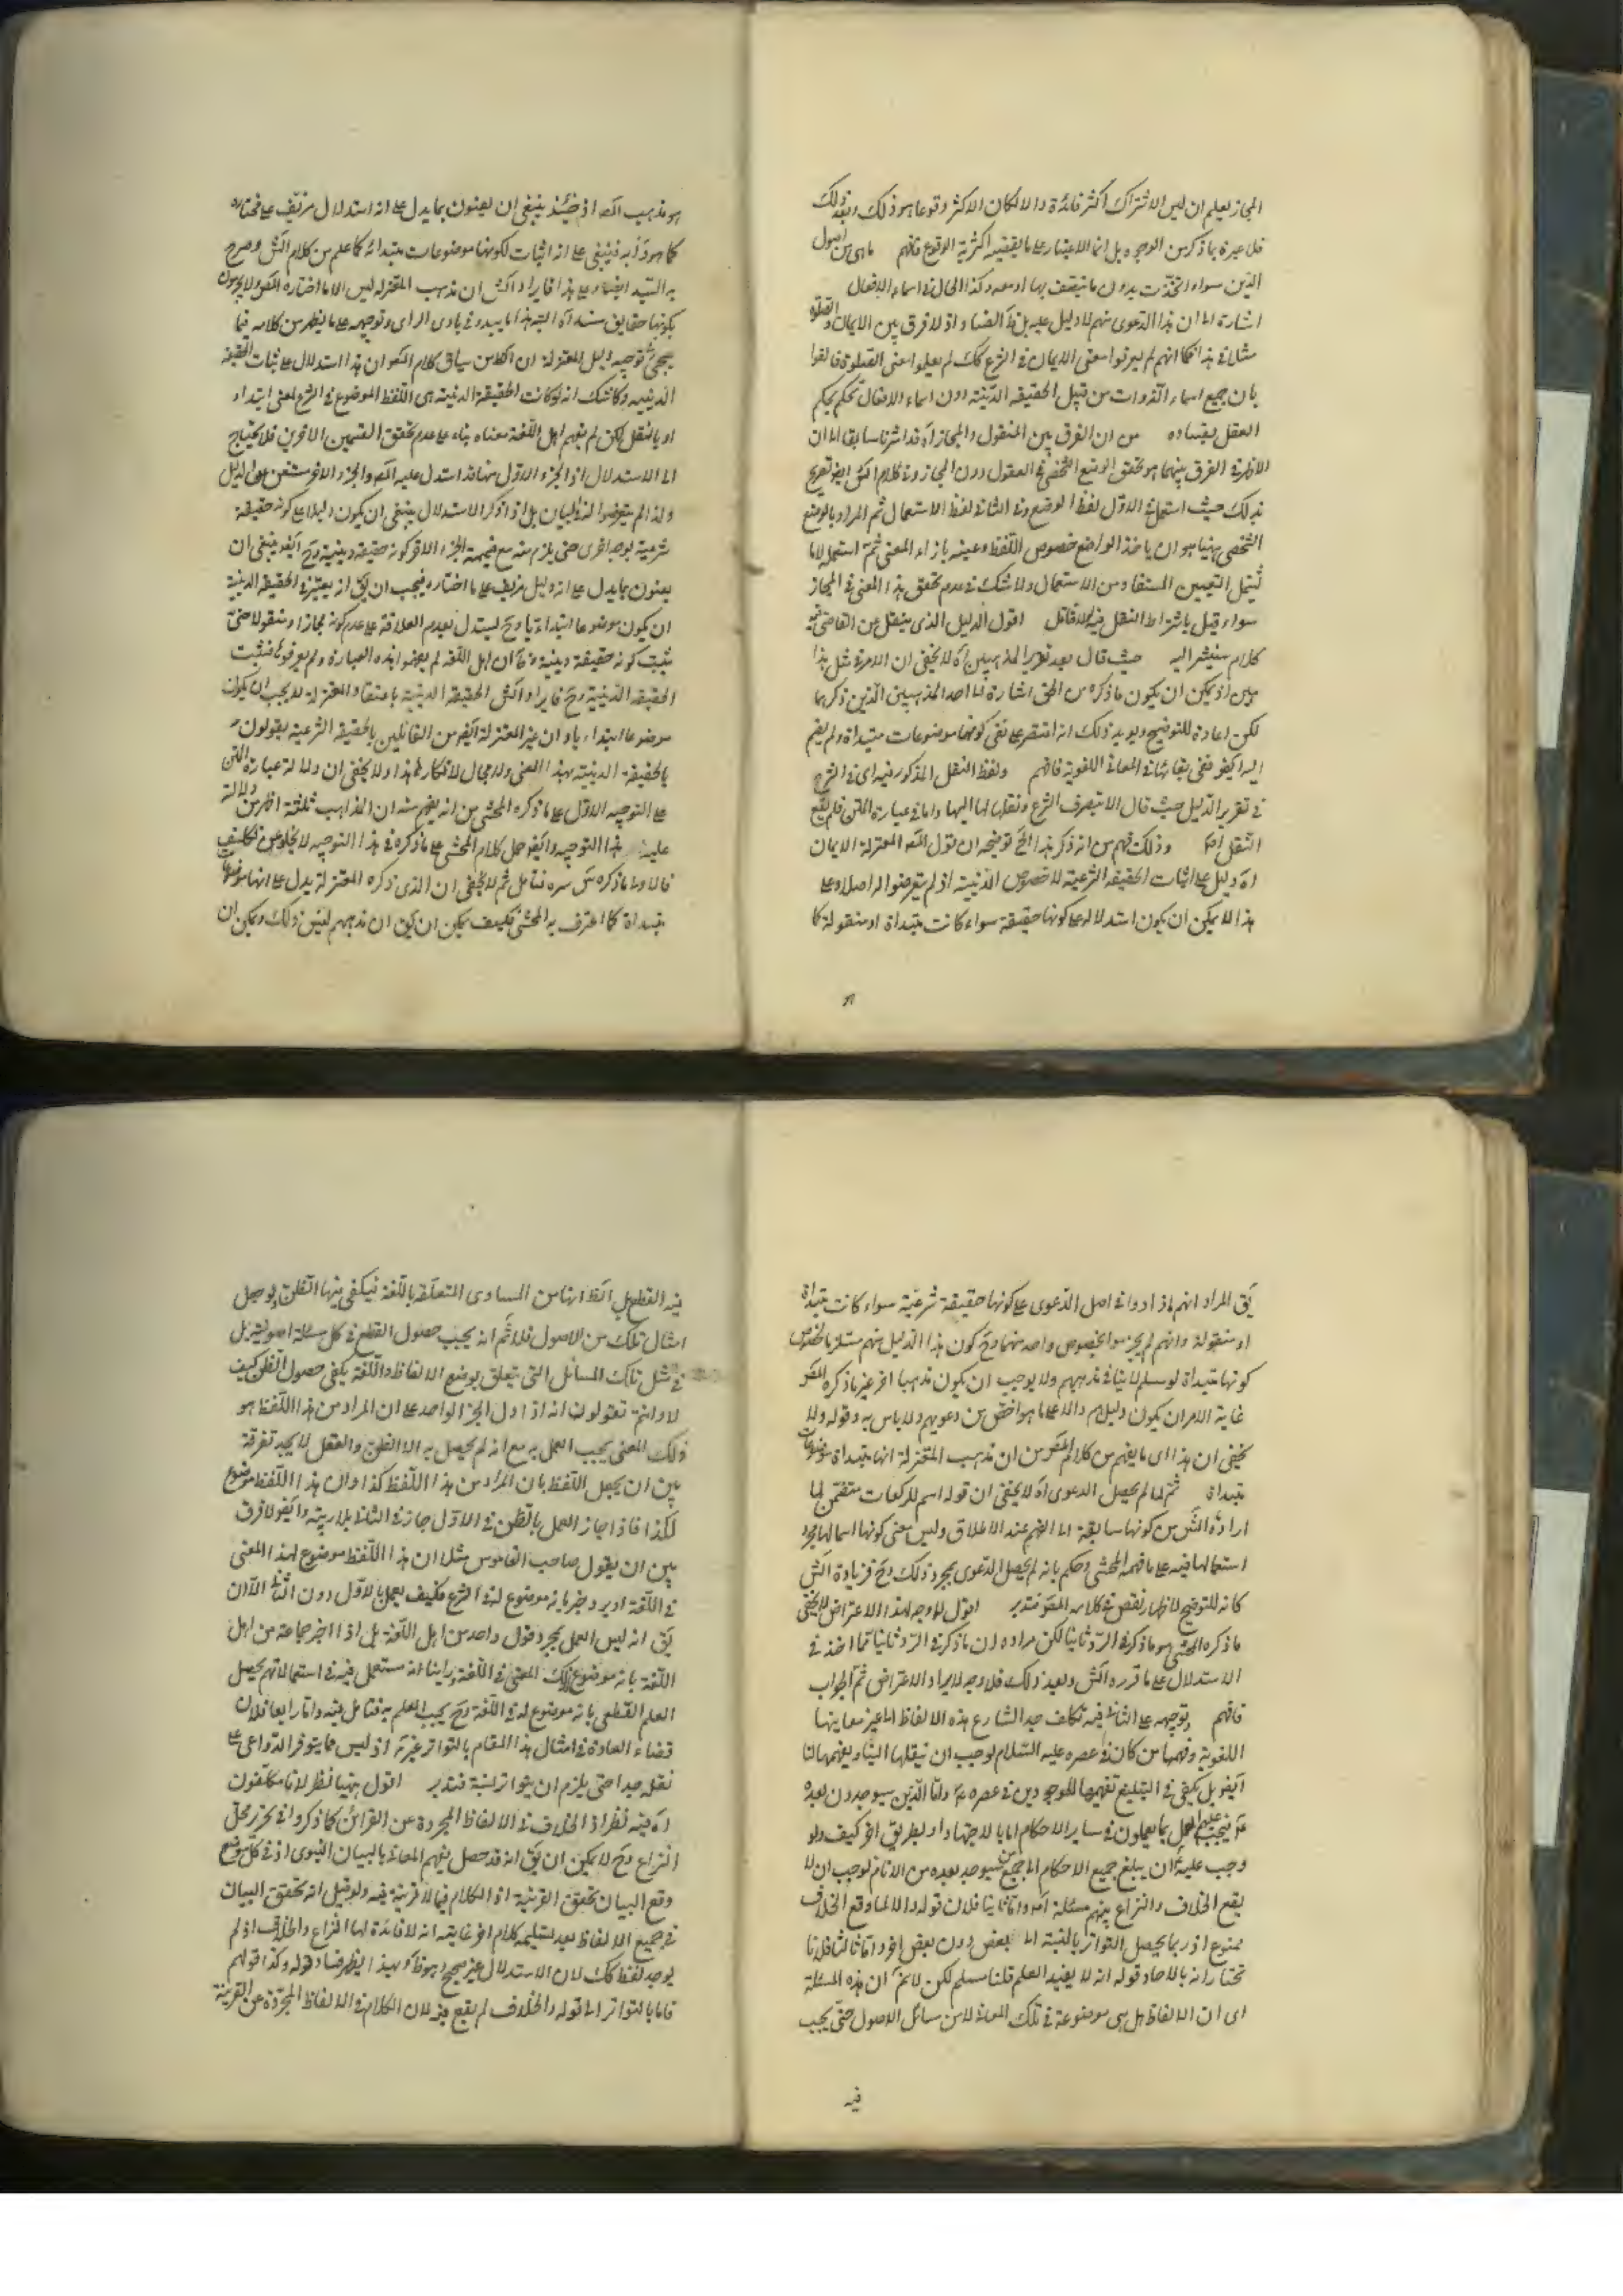 المجاز يعلم ان ليس الاشتراك اكثر فائدة والا لكان الاكثر وقوعا هو ذلك وبعد ذلك
فلا عبرة بما ذكر من الوجوه بل انما الاعتبار على ما يقتضيه اكثرية الوقوع فافهم ما هي من اصول
الدين سواء اتخذت بدون ما يتصف بها او معه وكذا الحال في اسماء الافعال
اشارة الى ان هذا الدعوى منهم لا دليل عليه بل اذ لا فرق بين الايمان والصلوة
مثلا في هذا فكما انهم لم يعرفوا معنى الايمان في الشرع كك لم يعلموا معنى الصلوة فالقوا
بان جميع اسماء الذوات من قبيل الحقيقة الدينية دون اسماء الافعال تحكم يحكم
العقل بفساده من ان الفرق بين المنقول والمجاز آه قد اشرنا سابقا الى ان
الاظهر في الفرق بينهما هو تحقق الوضع الشخصي في المنقول دون المجاز وفي كلام الش ايضا تصريح
بذلك حيث استعمل في الاول لفظ الوضع وفي الثاني لفظ الاستعمال ثم المراد بالوضع
الشخصي ههنا هو ان ياخذ الواضع خصوص اللفظ وعينه بازاء المعنى ثم استعمله لا ما
يشمل التعيين المستفاد من الاستعمال ولا شك في عدم تحقق هذا المعنى في المجاز
سواء قيل باشتراط النقل فيه اقول الدليل الذي ينقل عن القاضي فيه
كلام سنشير اليه حيث قال بعد تقرير المذهبين آه لا يخفى ان الامر في مثل هذا
هين اذ يمكن ان يكون ما ذكره من الحق اشارة الى احد المذهبين الذين ذكرهما
لكن اعادة للتوضيح ويؤيد ذلك انه اقتصر على نفي كونها موضوعات مبتداة ولم يضم
اليه نفي بقائها في المعاني اللغوية فافهم ولفظ النقل المذكور فيه اى في الشرح
في تقرير الدليل حيث قال الا بتصرف الشرع ونقلها اليها واما في عبارة المتن فلم يقع
النقل وذلك فهم من انه ذكر هذا الخ توضيحه ان قول المص المعتزلة الايمان
آه دليل على اثبات الحقيقة الشرعية لا خصوص الدينية اذ لم يتعرضوا له اصلا وعلى
هذا لا يمكن ان يكون استدلاله على كونها حقيقة سواء كانت مبتداة او منقولة كما
هو مذهب المص اذ حينئذ ينبغي ان يعنون بما يدل على انه استدلال مزيف على مختاره
كما هو دأبه فينبغي على انه اثبات لكونها موضوعات مبتداة كما علم من كلام الش وصرح
به السيد ايضا وعلى هذا ان مذهب المعتزلة ليس الا ما اختاره المص ولا يقولون
بكونها حقايق مبتداة البتة هذا ما يبدو في بادي الراى وتوجيهه على ما يظهر من كلامه فيما
يجئ في توجيه دليل المعتزلة ان الظ من سياق كلام المص ان هذا استدلال على اثبات الحقيقة
الدينية ولا شك انه لو كانت الحقيقة الدينية هي اللفظ الموضوع في الشرع لمعنى ابتداء
او بالنقل لكن لم يفهم اهل اللغة معناه بناء على عدم تحقق القسمين الاخرين فلا يحتاج
الى الاستدلال اذ الجزء الاول منها قد استدل عليه المص والجزء الاخر مستغن عن الدليل
ولذا لم يتعرضوا له بالبيان بل اذا ذكر الاستدلال ينبغي ان يكون دليلا على كونه حقيقة
شرعية بوجه اخرى حتى يلزم منه مع ضميمة الجزء الاخر كونه حقيقة دينية وح ينبغي ان
يعنون بما يدل على انه دليل مزيف على ما اختاره فيجب ان يق انه يعتبر في الحقيقة الدينية
ان يكون موضوعا ابتداء وح يستدل بعدم العلاقة على عدم كونه مجازا ومنقولا حتى
يثبت كونه حقيقة دينية ان اهل اللغة لم يضعوا هذه العبارة ولم يعرفوها فيثبت
الحقيقة الدينية وح الحقيقة الدينية باعتقاد المعتزلة لا يجب ان يكون
موضوعا ابتداء ان غير المعتزلة من القائلين بالحقيقة الشرعية يقولون
بالحقيقة الدينية بهذا المعنى ولا مجال لانكار هذا ولا يخفى ان دلالة عبارة المتن
على التوجيه الاول على ما ذكره المحشي من انه يفهم منه ان المذاهب ثلثة اظهر من دلالته
على هذا التوجيه وايضا حمل كلام المحشي على ما ذكره في هذا التوجيه لا يخلو عن تكلف
فالاولى ما ذكره قدس سره فتامل ثم لا يخفى ان الذي ذكره المعتزلة يدل على انها موضوعة
مبتداة كما اعترف به المحشي فكيف يمكن ان يق ان مذهبهم ليس ذلك ويمكن ان
يق المراد انهم ما ذا دوا في اصل الدعوى على كونها حقيقة شرعية سواء كانت مبتداة
او منقولة وانهم لم يجزموا بخصوص واحد منهما وح كون هذا الدليل منهم مستلزما لخصوص
كونها مبتداة لو سلم لا ينافي مذهبهم ولا يوجب ان يكون مذهبا اخر غير ما ذكره المص
غاية الامر ان يكون دليلهم دالا على ما هو اخص من دعويهم ولا باس به وقوله ولا
يخفى ان هذا اى ما يفهم من كلام المص من ان مذهب المعتزلة انها مبتداة موضوعات
مبتداة ثم لما لم يحصل الدعوى آه لا يخفى ان قوله اسم للركعات متضمن لما
اراده الش من كونها سابقة الى الفهم عند الاطلاق وليس معنى كونها اسما لها مجرد
استعمالها فيه على ما فهمه المحشي وحكم بانه لم يحصل الدعوى بمجرد ذلك وح فزيادة الش
كانه للتوضيح لا لاظهار نقص في كلام المص فتدبر اقول لا وجه لهذا الاعتراض لا يخفى
ما ذكره المحشي هو ما ذكر في الرد ثانيا لكن مراده ان ما ذكر في الرد ثانيا قد اخذ في
الاستدلال على ما قرره الش وبعد ذلك فلا وجه لايراد الاعتراض ثم الجواب
فافهم وتوجيهه على الثاني فيه تكلف جدا الشارع هذه الالفاظ الى غير معانيها
اللغوية وفهمها من كان في عصره عليه السلام لوجب ان ينقلها الينا ويفهمها لنا
ايضا بل يكفي في التبليغ تفهيمها للموجودين في عصره واما الذين سيوجدون بعده
فيجب عليهم العمل بما يعملون في ساير الاحكام اما بالاجتهاد او بطريق اخر كيف ولو
وجب عليه ان يبلغ جميع الاحكام الى جميع من سيوجد بعده من الانام لوجب ان لا
يقع الخلاف والنزاع بينهم في مسئلة واما ثانيا فلان قوله والا لما وقع الخلاف
ممنوع اذ ربما يحصل التواتر بالنسبة الى بعض دون بعض اخر واما ثالثا فلانا
نختار انه بالاحاد قوله انه لا يفيد العلم قلنا مسلم لكن لا نم ان هذه المسئلة
اى ان الالفاظ هل هي موضوعة في تلك المعاني لا من مسائل الاصول حتى يجب
فيه
فيه القطع بل الظ انها من المبادى المتعلقة باللغة فيكفي فيها الظن ولو جعل
امثال تلك من الاصول فلا نم انه يجب حصول القطع في كل مسئلة اصولية بل
في مثل تلك المسائل التي يتعلق بوضع الالفاظ واللغة يكفي حصول الظن كيف
لا وانتم تقولون انه اذا دل الخبر الواحد على ان المراد من هذا اللفظ هو
ذلك المعنى يجب العمل به مع انه لم يحصل به الا الظن والعقل لا يجد تفرقة
بين ان يجعل اللفظ بان المراد من هذا اللفظ كذا وان هذا اللفظ موضوع
لكذا فاذا جاز العمل بالظن في الاول جاز في الثاني بلا ريبة وايضا لا فرق
بين ان يقول صاحب القاموس مثلا ان هذا اللفظ موضوع لهذا المعنى
في اللغة او يرد خبر بانه موضوع له في الشرع فكيف يعمل بالاول دون الثاني الا ان
يق انه ليس العمل بمجرد قول واحد من اهل اللغة بل اذا اخبر جماعة من اهل
اللغة بانه موضوع لذلك المعنى في اللغة وراينا انه مستعمل فيه في استعمالاتهم يحصل
العلم القطعي بانه موضوع له في اللغة وح يجب العلم به فتامل فيه واما رابعا فلان
قضاء العادة في امثال هذا المقام بالتواتر غير اذ ليس مما يتوفر الدواعي على
نقله جدا حتى يلزم ان يتواتر البتة فتدبر اقول ههنا نظر لانا مكلفون
آه فيه نظر اذ الخلاف في الالفاظ المجردة عن القرائن كما ذكروا في تحرير محل
النزاع وح لا يمكن ان يق انه قد حصل تفهيم المعاني بالبيان النبوى اذ في كل موضع
وقع البيان تحقق القرينة اذ الكلام فيما لا قرينة فيه ولو قيل انه تحقق البيان
في جميع الالفاظ بعد تسليمه كلام اخر غايته انه لا فائدة لهذا النزاع والخلاف اذ لم
يوجد لفظ كك لان الاستدلال غير صحيح وهو ظ وبهذا يظهر فساد قوله وكذا قولهم
فاما بالتواتر الى قوله والخلاف لم يقع فيه لان الكلام في الالفاظ المجردة عن القرينة